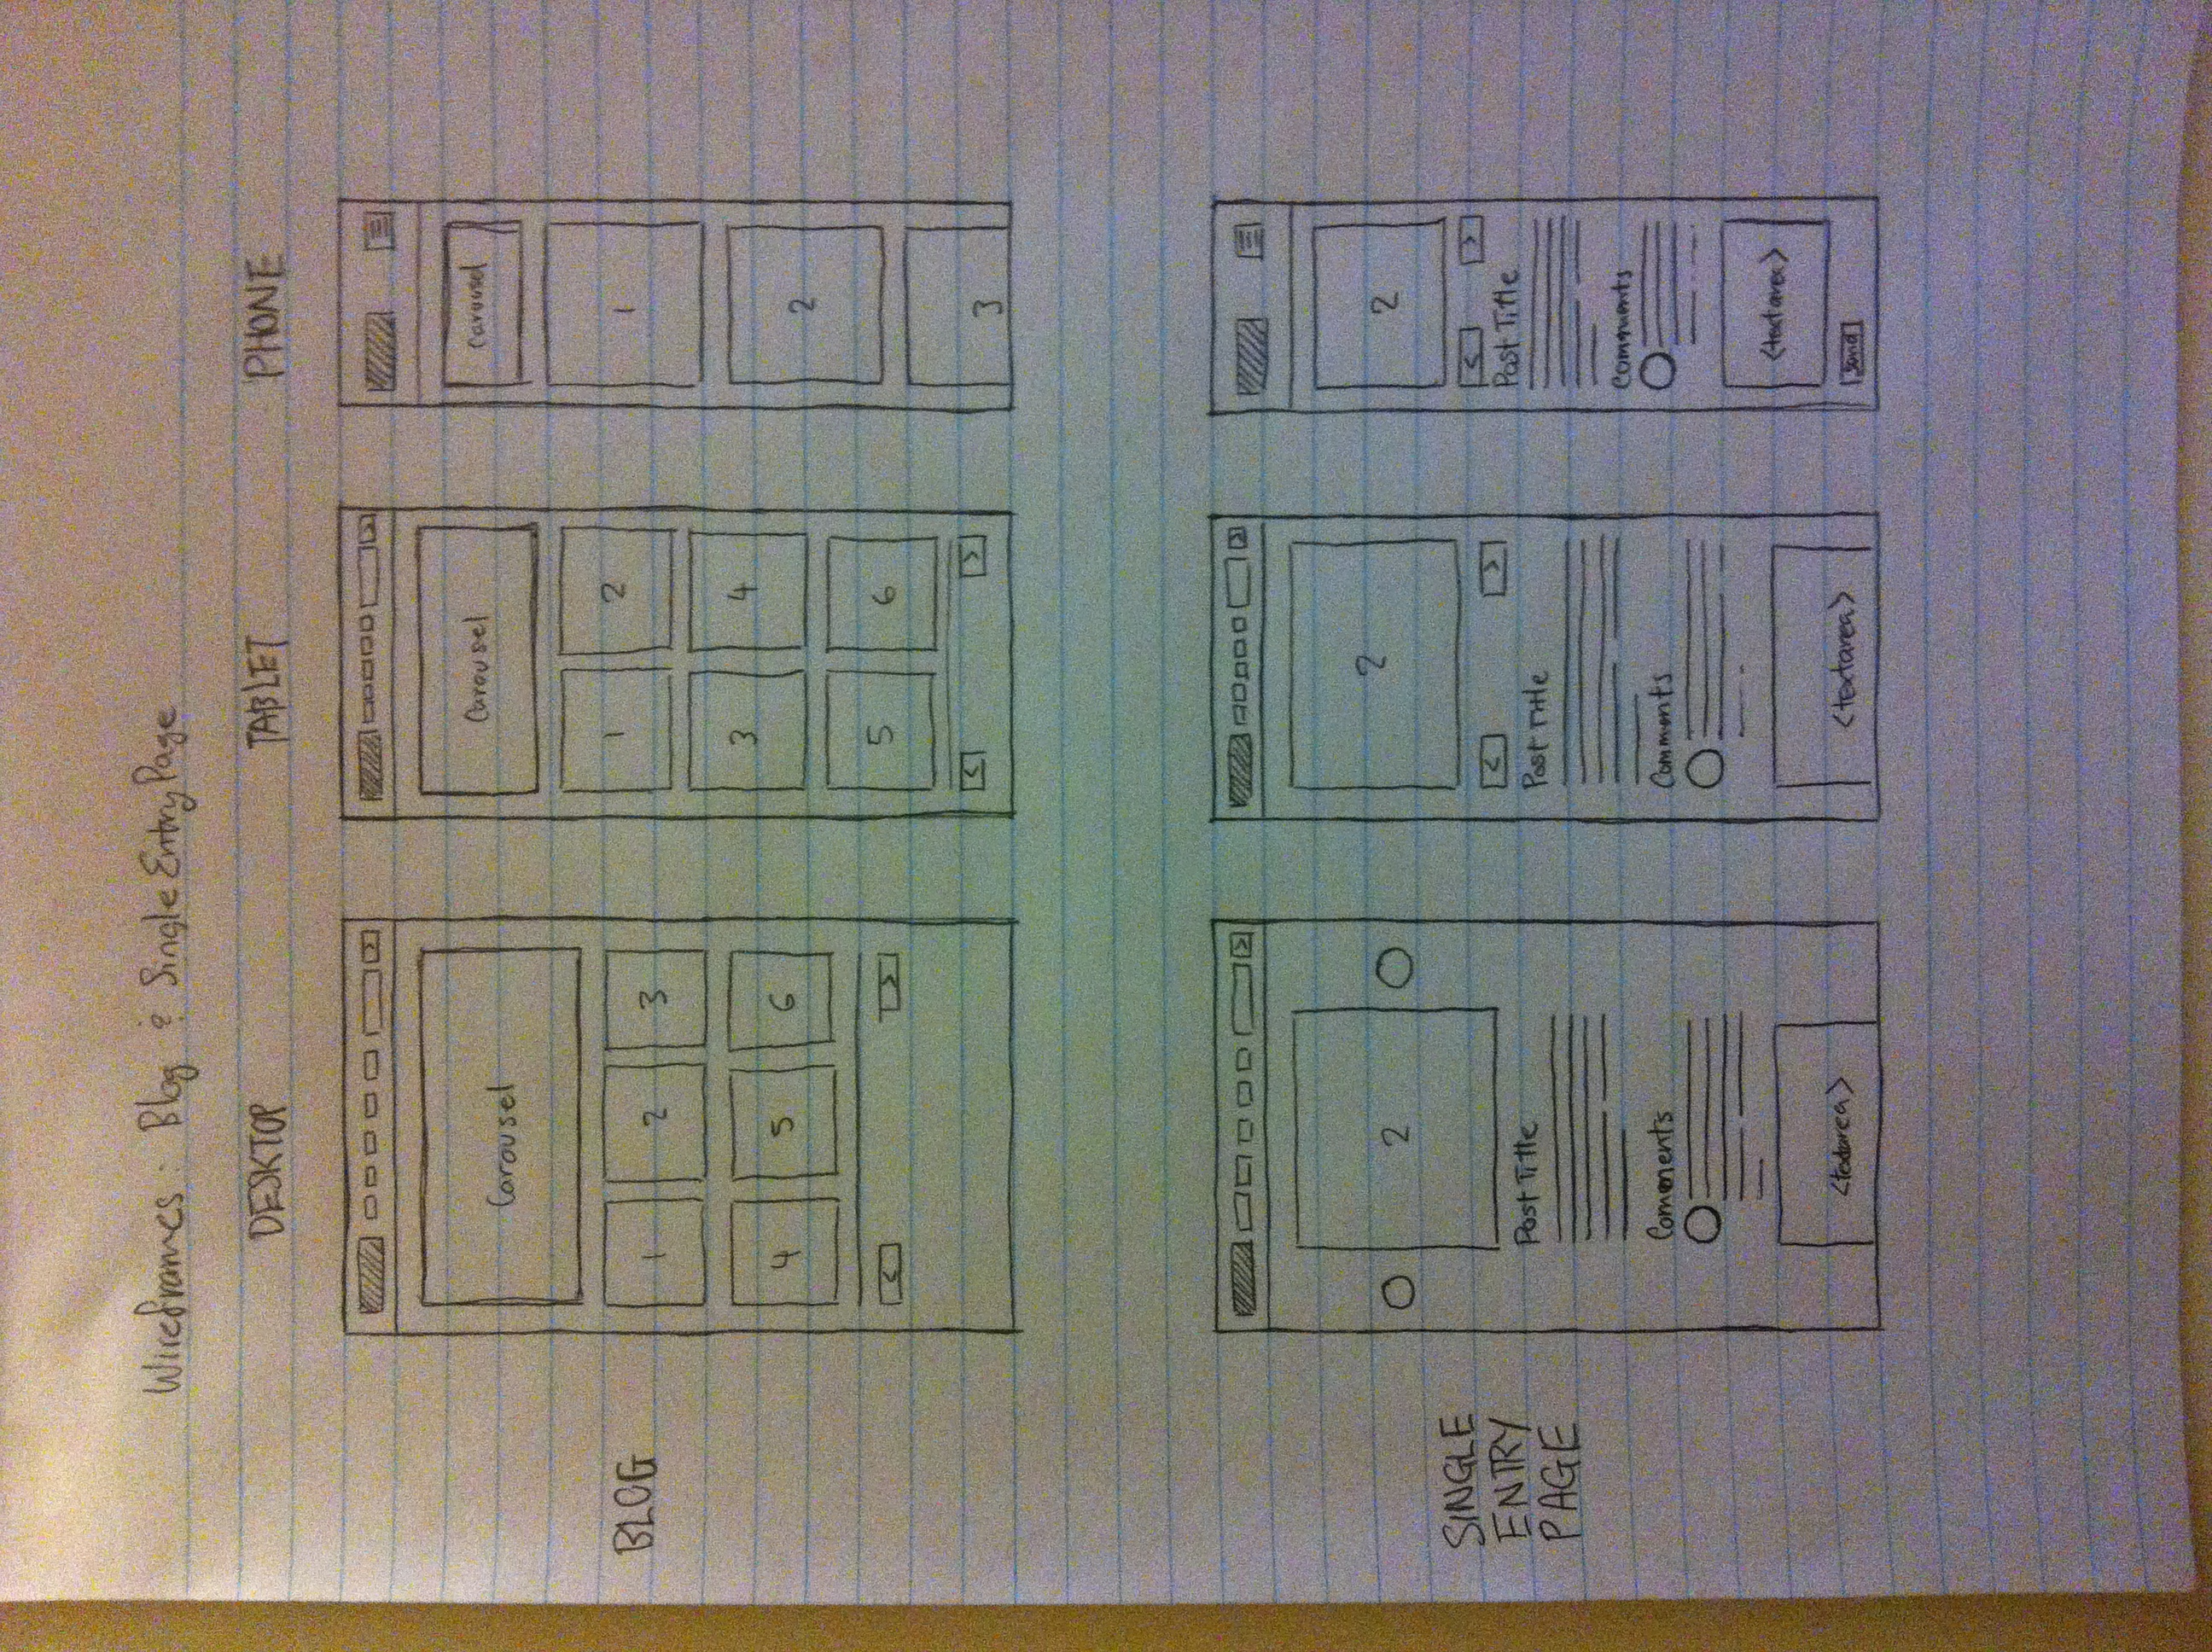 Wireframes: Blog & Single Entry Page
DESKTOP
TABLET
PHONE
BLOG
>
Carousel
1 2 3
4 5 6
< >
>
Carousel
1 2
3 4
5 6
< >
Carousel
1
2
3
SINGLE
ENTRY
PAGE
>
2
Post Title
Comments
<textarea>
>
2
< >
Post Title
Comments
<textarea>
2
< >
Post Title
Comments
<textarea>
Send